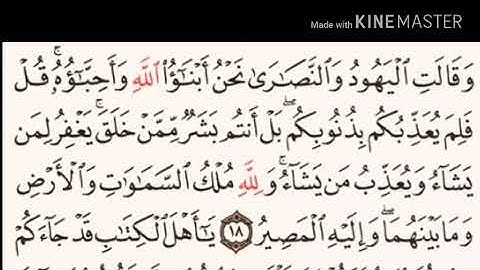 Made with KINEMASTER
وَقَالَتِ ٱلْيَهُودُ وَٱلنَّصَٰرَىٰ نَحْنُ أَبْنَٰٓؤُا۟ ٱللَّهِ وَأَحِبَّٰٓؤُهُۥ ۚ قُلْ
فَلِمَ يُعَذِّبُكُم بِذُنُوبِكُم ۖ بَلْ أَنتُم بَشَرٌ مِّمَّنْ خَلَقَ ۚ يَغْفِرُ لِمَن
يَشَآءُ وَيُعَذِّبُ مَن يَشَآءُ ۚ وَلِلَّهِ مُلْكُ ٱلسَّمَٰوَٰتِ وَٱلْأَرْضِ
وَمَا بَيْنَهُمَا ۖ وَإِلَيْهِ ٱلْمَصِيرُ ١٨ يَٰٓأَهْلَ ٱلْكِتَٰبِ قَدْ جَآءَكُمْ